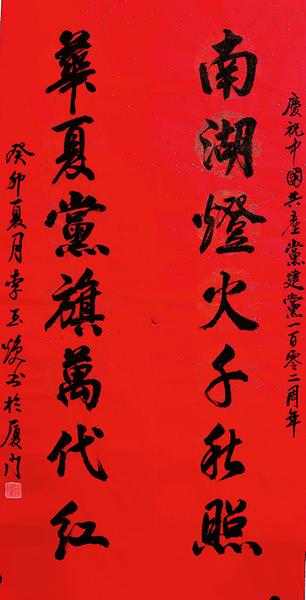 慶祝中國共產黨建黨一百零二周年
南湖燈火千秋照
華夏黨旗萬代紅
癸卯夏月李玉煥书於厦门